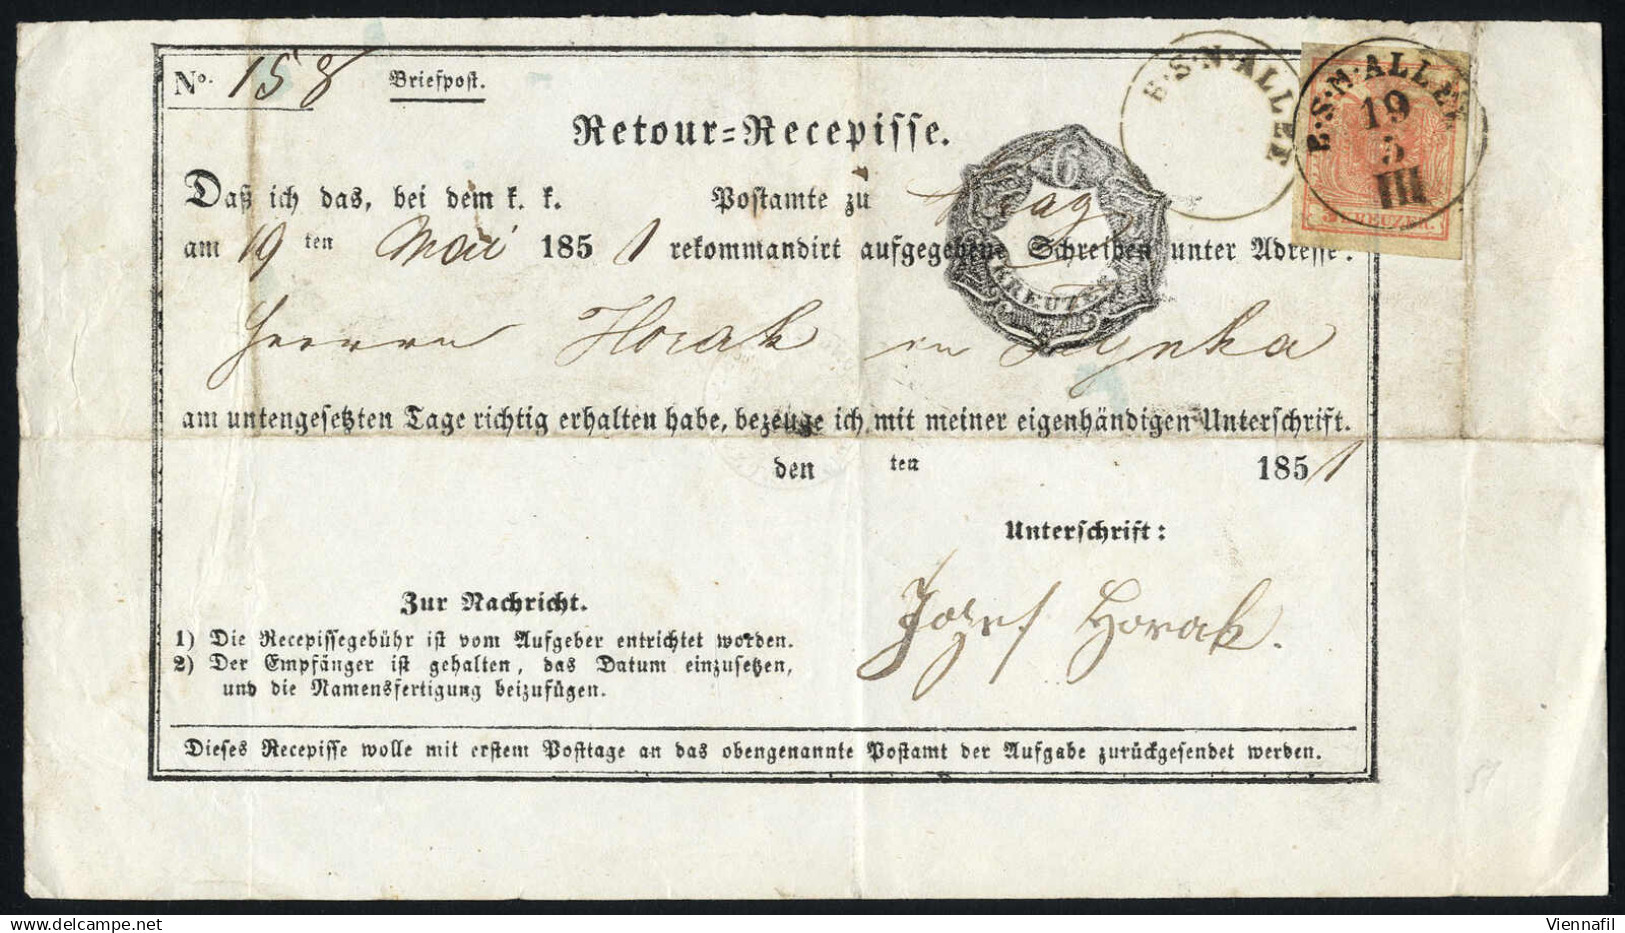 No. 158 Briefpost.
Retour=Recepisse.
Daß ich das, bei dem k. k. Postamte zu Prag
am 19 ten Mai 1851 rekommandirt aufgegebene Schreiben unter Adresse:
Herrn Horak in
am untengesetzten Tage richtig erhalten habe, bezeuge ich mit meiner eigenhändigen Unterschrift.
den ten 1851
Unterschrift:
Jozef Horak.
Zur Nachricht.
1) Die Recepissegebühr ist vom Aufgeber entrichtet worden.
2) Der Empfänger ist gehalten, das Datum einzusetzen,
und die Namensfertigung beizufügen.
Dieses Recepisse wolle mit erstem Posttage an das obengenannte Postamt der Aufgabe zurückgesendet werden.
6
KREUZER
B·S·N·ALLEE
B·S·N·ALLEE
19
5
III
3 KREUZER.
Viennafil